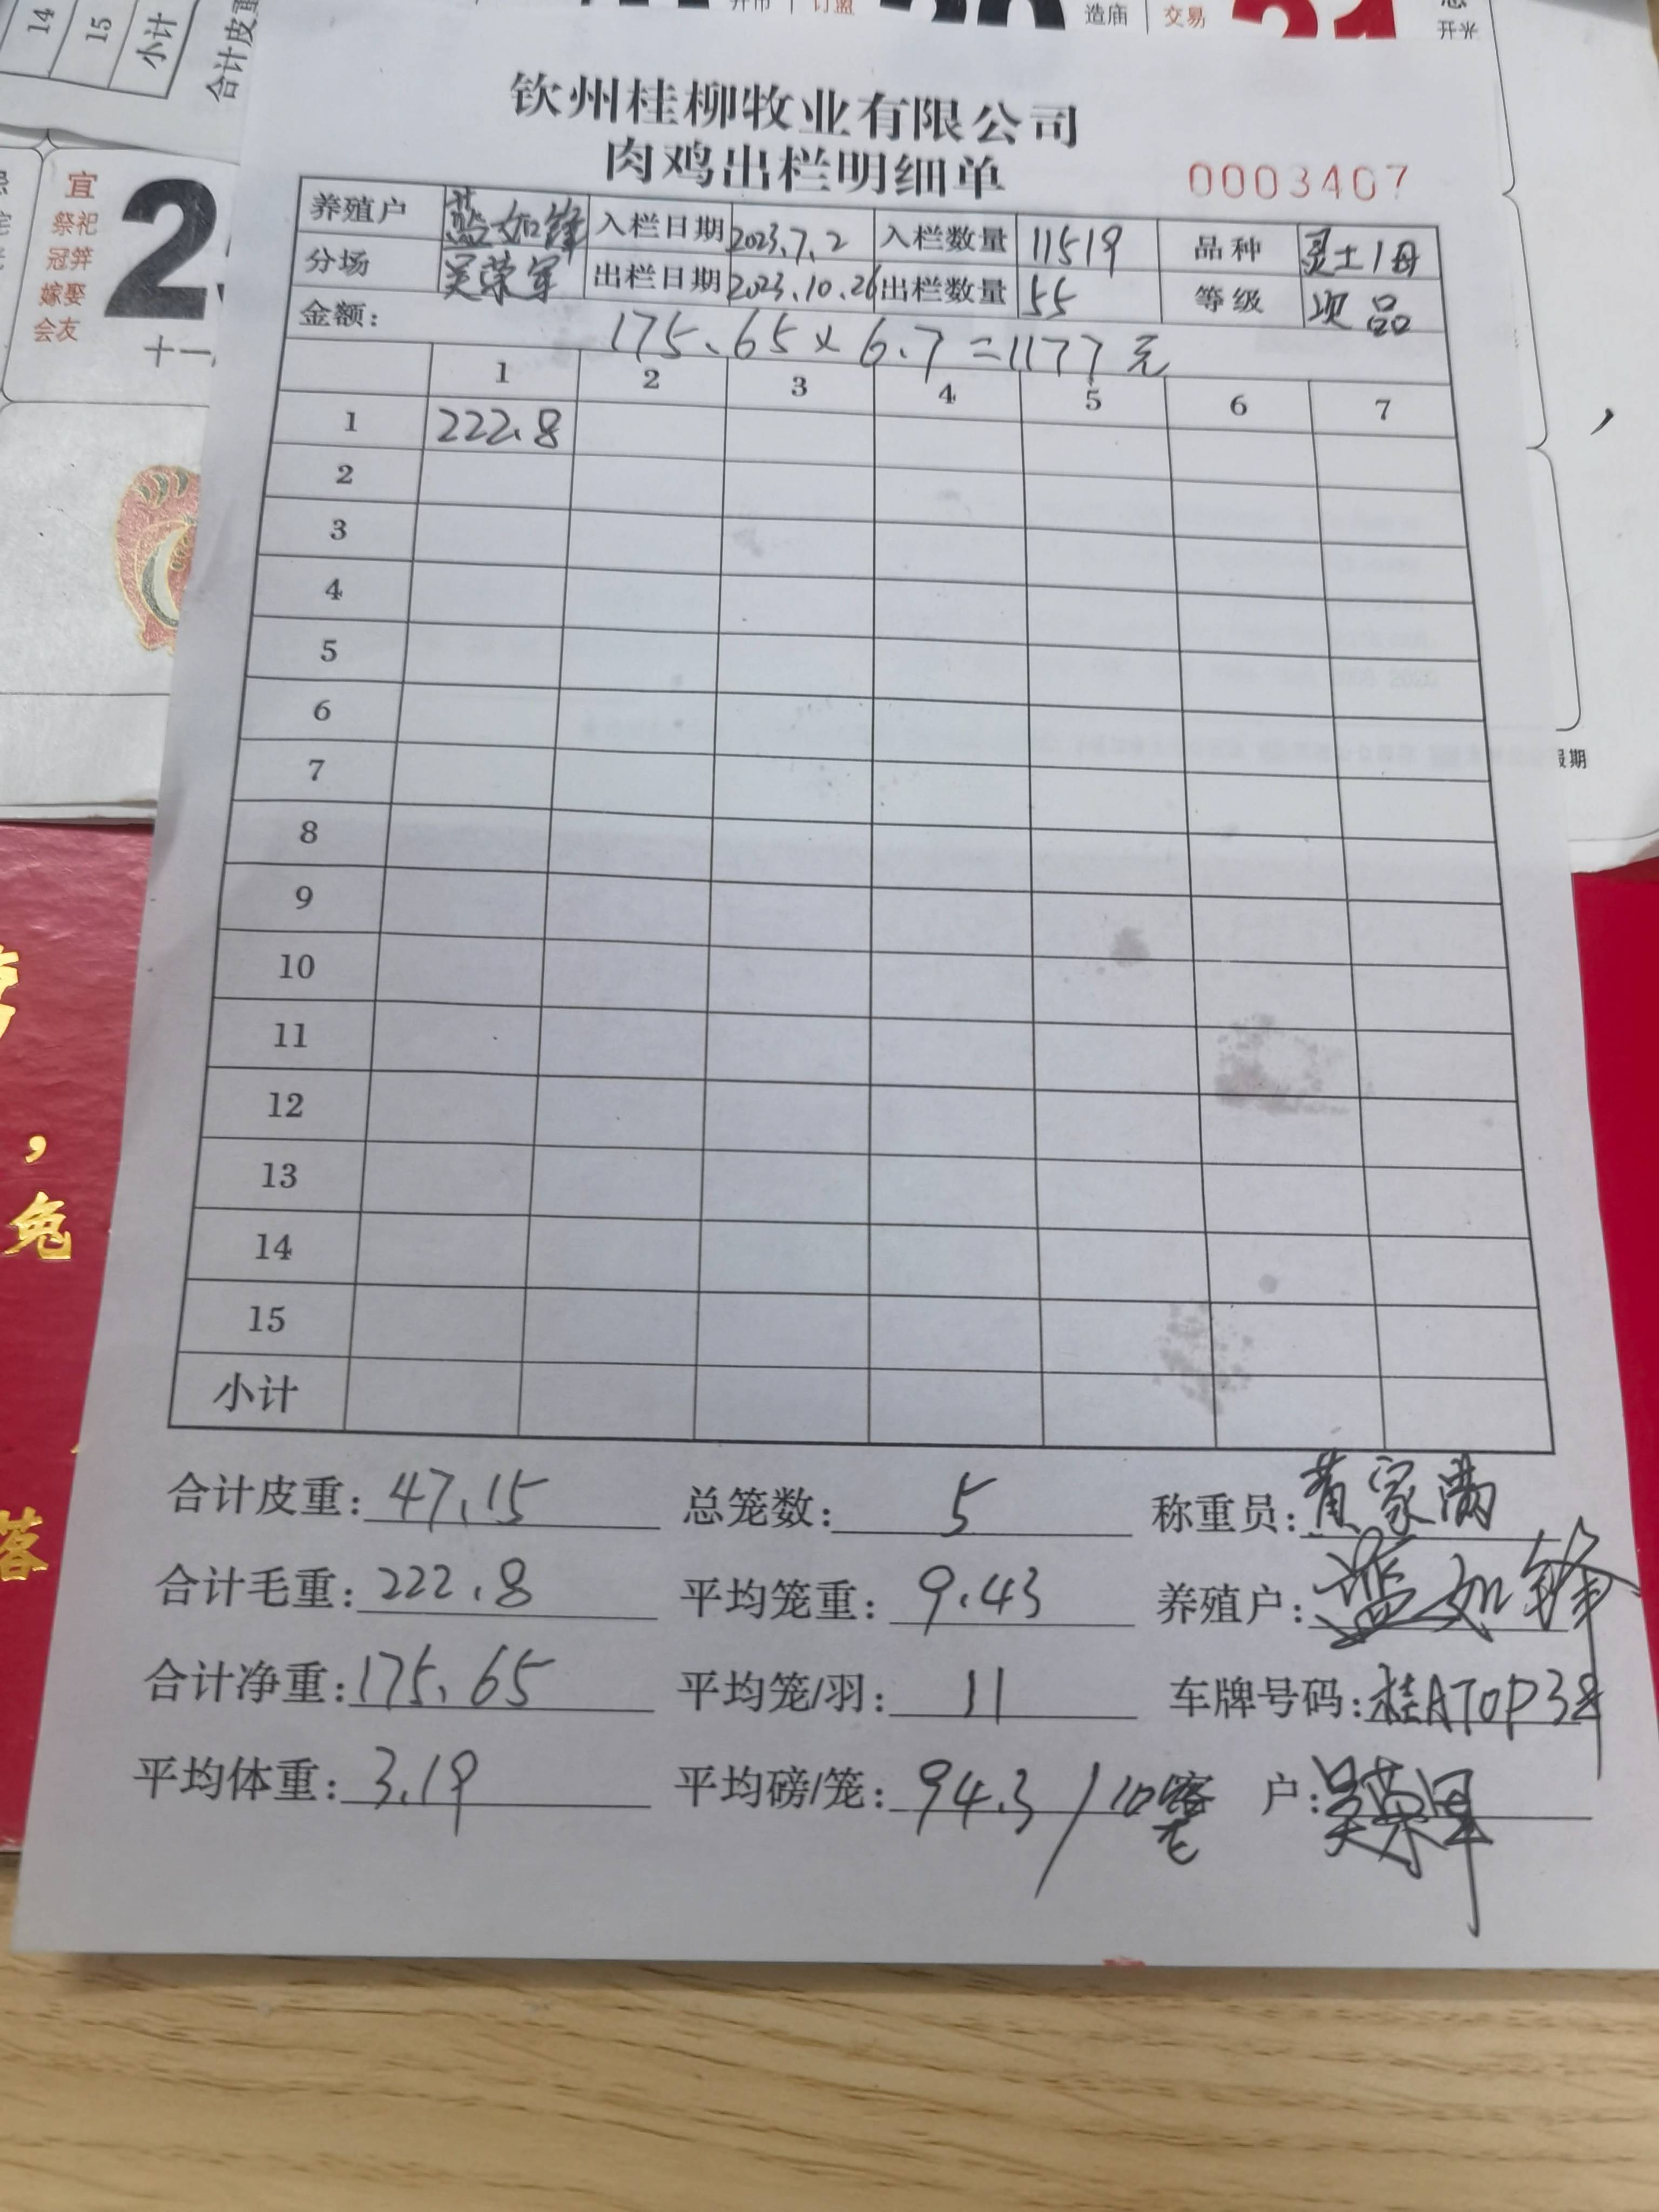 14 15 小计
开市 订盟 造庙 交易 开光
钦州桂柳牧业有限公司
肉鸡出栏明细单 0003407
宜
祭祀
冠笄
嫁娶
会友
养殖户 蓝如锋 入栏日期 2023.7.2 入栏数量 11519 品种 灵土1母
分场 吴荣军 出栏日期 2023.10.26 出栏数量 55 等级 项品
金额: 175.65×6.7=1177元
1 2 3 4 5 6 7
1 222.8
2
3
4
5
6
7
8
9
10
11
12
13
14
15
小计
合计皮重: 47.15 总笼数: 5 称重员: 黄家满
合计毛重: 222.8 平均笼重: 9.43 养殖户: 蓝如锋
合计净重: 175.65 平均笼/羽: 11 车牌号码: 桂AT0P38
平均体重: 3.19 平均磅/笼: 94.3/10笼 客户: 吴荣军
兔
落